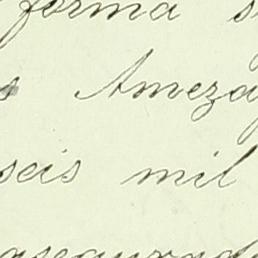 forma s
s Ameza
seis mil
asegurad